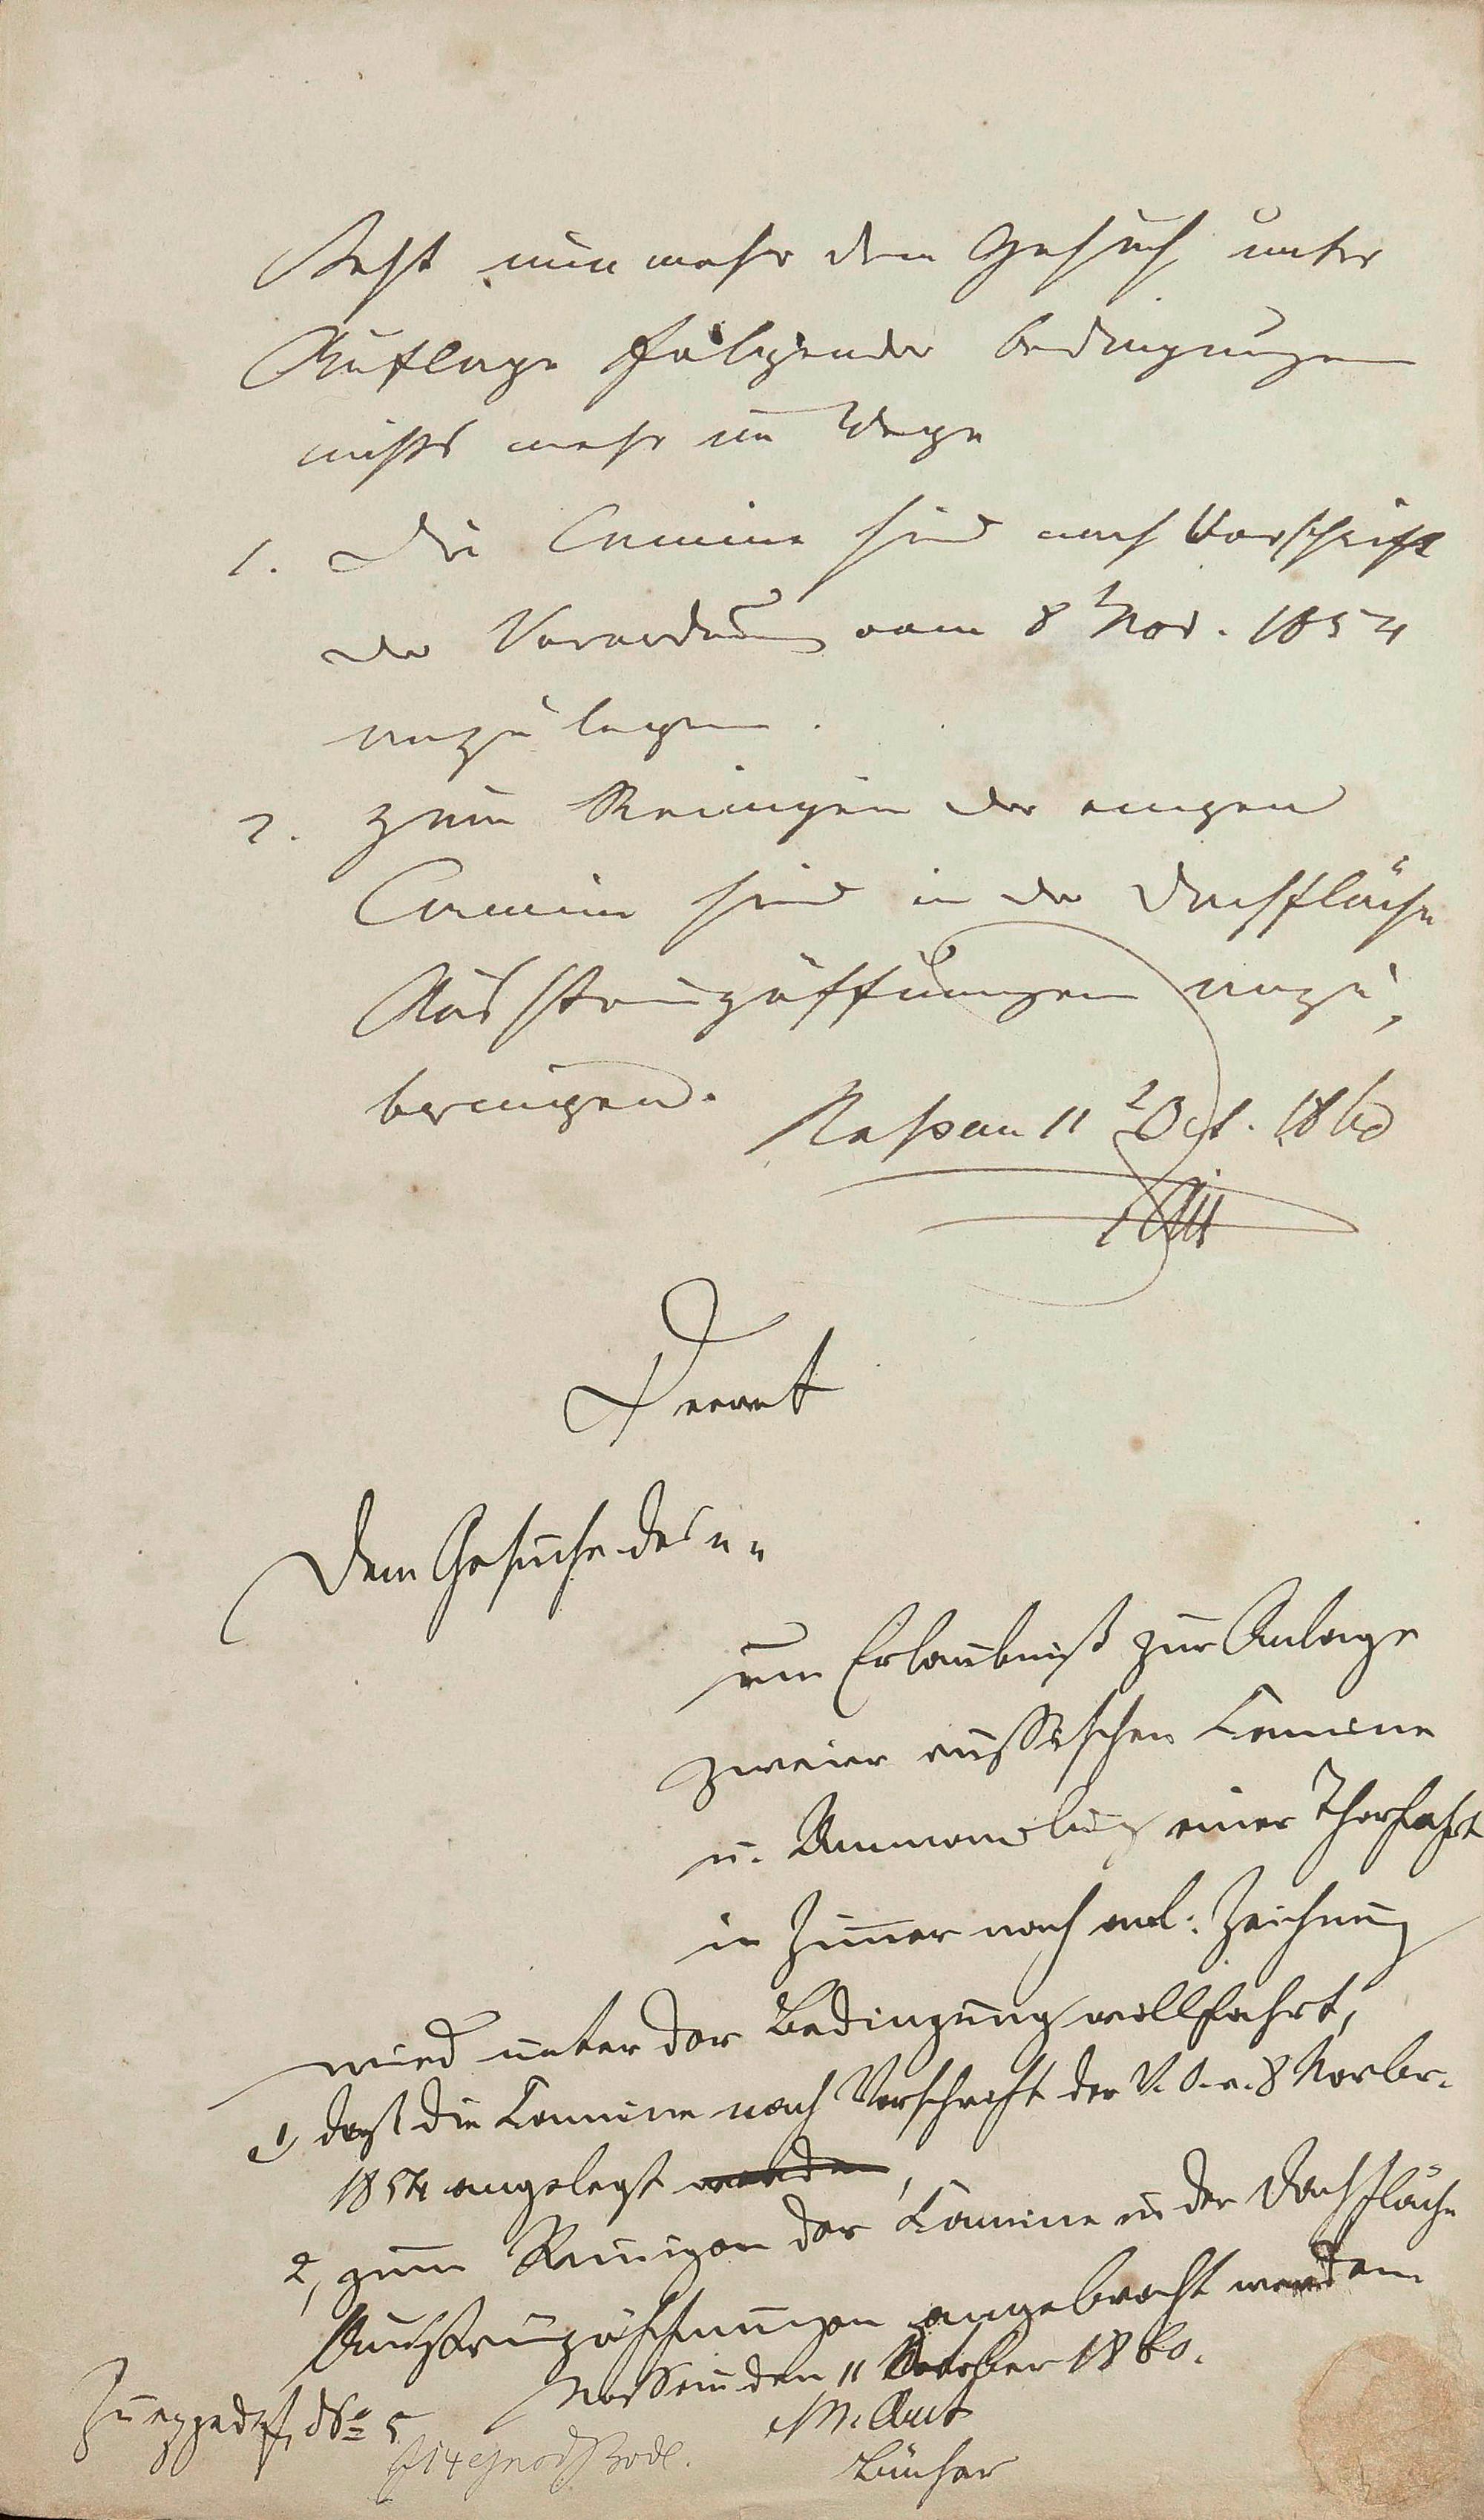 Steht nun mehr dem Gesuch unter
Auflage folgender Bedingungen
nichts mehr im Wege
1. Die Camine sind nach Vorschrift
der Verordnung vom 8 Nov. 1854
anzulegen.
2. Zum Reinigen der engen
Camine sind in der Dachfläche
Aussteigöffnungen anzu„
bringen.
Nassau 11 Oct. 1860
Decret
Dem Gesuche des
um Erlaubniß zur Anlage
zweier russischen Kamine
u. Umwandlung einer Thorfahrt
in Zimmer nach anl: Zeichnung
wird unter der Bedingung willfahrt,
1, daß die Kamine nach Vorschrift der V. O. v. 8 Novbr.
1854 angelegt werden,
2, zum Reinigen der Kamine in der Dachfläche
Aussteigöffnungen angebracht werden
Nassau den 11 October 1860.
H. M. Amt